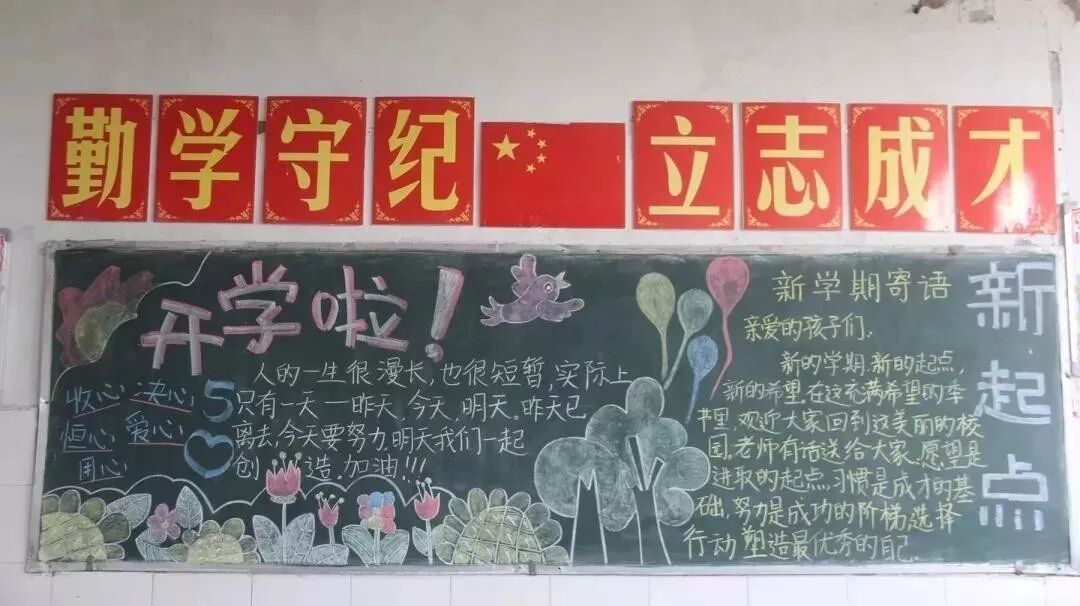 勤学守纪 立志成才
开学啦！
收心 决心
恒心 爱心
用心
5
人的一生很漫长,也很短暂,实际上
只有一天一昨天,今天,明天。昨天已
离去,今天要努力,明天我们一起
创造,加油!!!
新学期寄语
亲爱的孩子们.
新的学期,新的起点,
新的希望.在这充满希望的季
书里,欢迎大家回到这美丽的校
园.老师有话送给大家.愿望是
进取的起点,习惯是成才的基
础,努力是成功的阶梯,选择
行动塑造最优秀的自己.
新起点